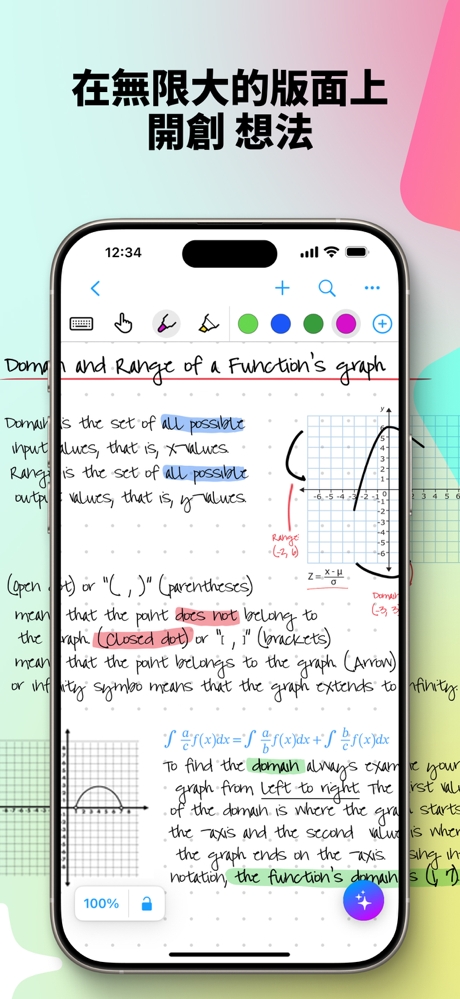 在無限大的版面上
開創 想法
12:34
Domain and Range of a Function's graph
Domain is the set of all possible
input values, that is, x-values.
Range is the set of all possible
output values, that is, y-values.
y
6
5
4
3
2
1
-6 -5 -4 -3 -2 -1 0 1 2 3
-1
-2
-3
-4
-5
-6
Range
(-2, 6)
Z = x - μ / σ
Domain
(-3, 3)
(Open dot) or "( , )" (parentheses)
means that the point does not belong to
the graph. (Closed dot) or "[ , ]" (brackets)
means that the point belongs to the graph (Arrow)
or infinity symbo means that the graph extends to infinity.
∫ a/c f(x)dx = ∫ a/b f(x)dx + ∫ b/c f(x)dx
To find the domain always examine your
graph from left to right. The first value
of the domain is where the graph starts
the -axis and the second value is where
the graph ends on the -axis.
notation, the function's domain is (1, 7)
100%